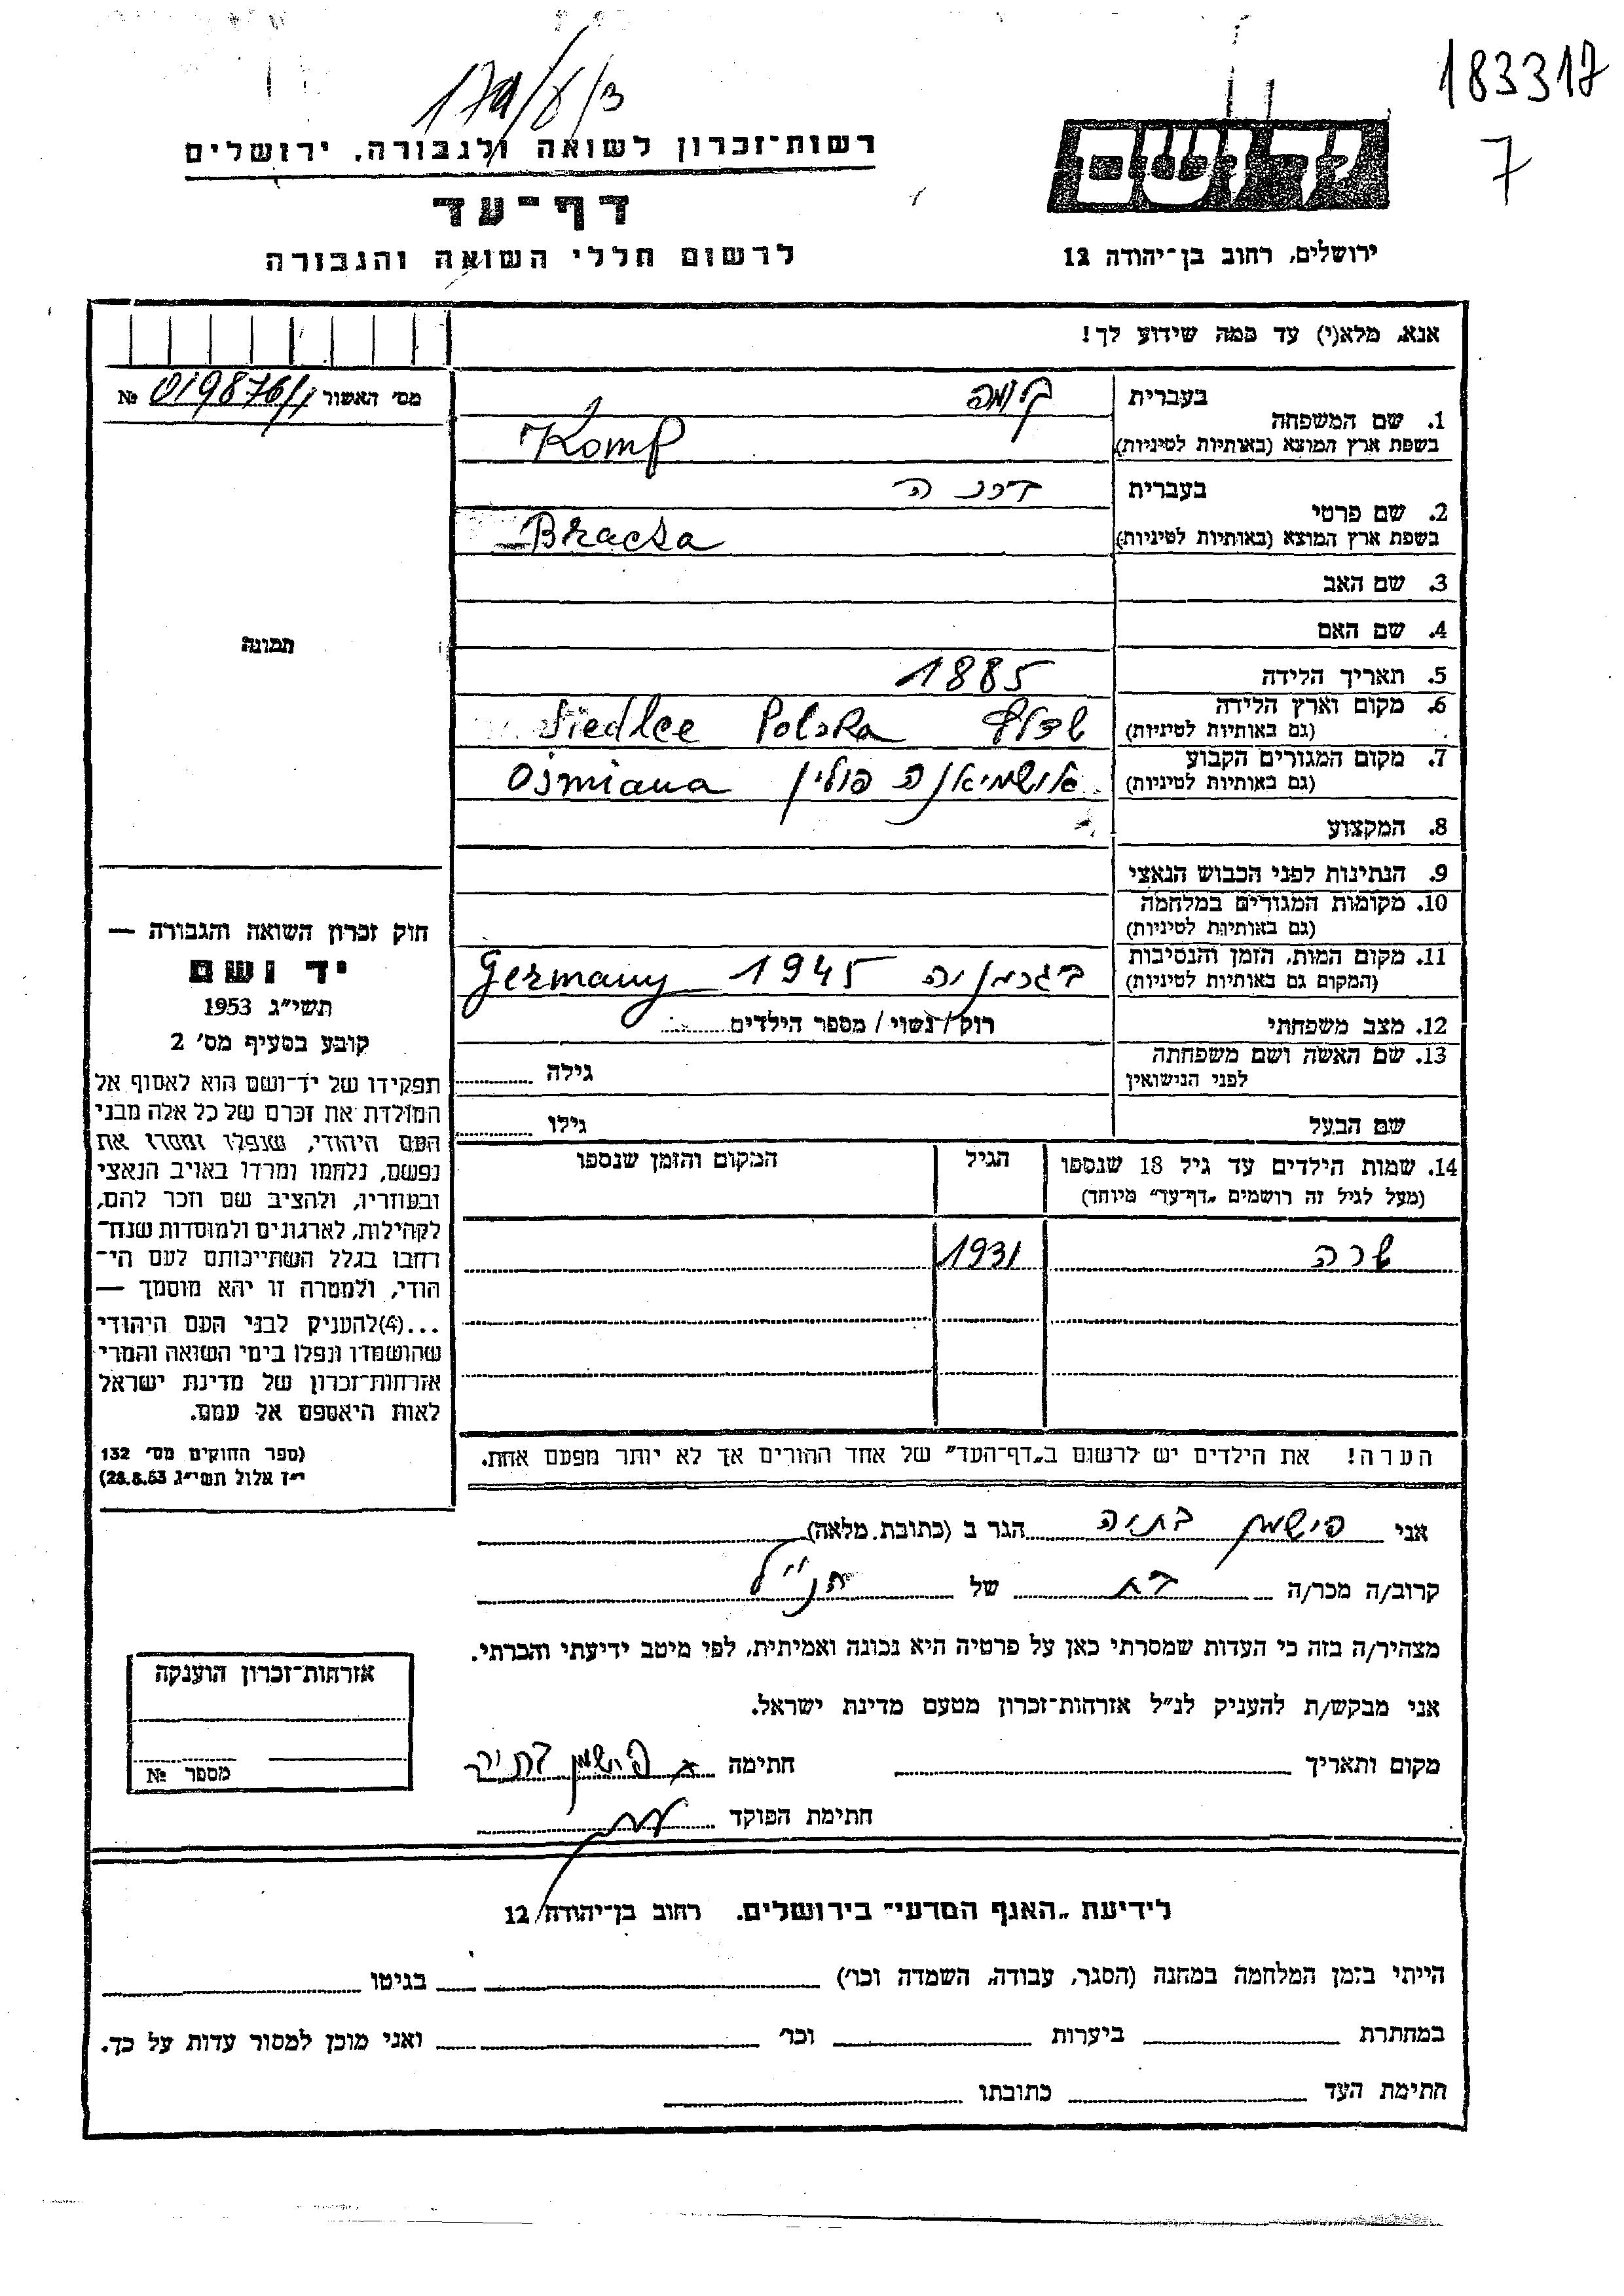 183317
7
יד ושם
רשות־זכרון לשואה ולגבורה, ירושלים
דף־עד
לרשום חללי השואה והגבורה
ירושלים, רחוב בן־יהודה 12
אנא, מלא(י) עד כמה שידוע לך!
מס׳ האשור № 019876/1
בעברית
1. שם המשפחה
בשפת ארץ המוצא (באותיות לטיניות) Komp
בעברית ברכה
2. שם פרטי
בשפת ארץ המוצא (באותיות לטיניות) Bracha
3. שם האב
4. שם האם
5. תאריך הלידה 1885
6. מקום וארץ הלידה
(גם באותיות לטיניות) Polska Siedlce
7. מקום המגורים הקבוע
(גם באותיות לטיניות) אושמיאנה פולין Ośmiana
8. המקצוע
9. הנתינות לפני הכבוש הנאצי
10. מקומות המגורים במלחמה
(גם באותיות לטיניות)
11. מקום המות, הזמן והנסיבות
(המקום גם באותיות לטיניות) בגרמניה 1945 Germany
12. מצב משפחתי רווק / נשוי / מספר הילדים
13. שם האשה ושם משפחתה
לפני הנישואין גילה
שם הבעל גילו
14. שמות הילדים עד גיל 18 שנספו הגיל המקום והזמן שנספו
(מעל לגיל זה רושמים „דף־עד״ מיוחד)
שרה 1931
הערה! את הילדים יש לרשום ב„דף־העד״ של אחד ההורים אך לא יותר מפעם אחת.
תמונה
חוק זכרון השואה והגבורה —
יד ושם
תשי״ג 1953
קובע בסעיף מס׳ 2
תפקידו של יד־ושם הוא לאסוף אל
המולדת את זכרם של כל אלה מבני
העם היהודי, שנפלו ומסרו את
נפשם, נלחמו ומרדו באויב הנאצי
ובעוזריו, ולהציב שם וזכר להם,
לקהילות, לארגונים ולמוסדות שנח־
רבו בגלל השתייכותם לעם הי־
הודי, ולמטרה זו יהא מוסמך —
...(4) להעניק לבני העם היהודי
שהושמדו ונפלו בימי השואה והמרי
אזרחות־זכרון של מדינת ישראל
לאות היאספם אל עמם.
(ספר החוקים מס׳ 132
י״ז אלול תשי״ג 28.8.53)
אני פישמן בתיה הגר ב (כתובת מלאה)
קרוב/ה מכר/ה בת של הנ״ל
מצהיר/ה בזה כי העדות שמסרתי כאן על פרטיה היא נכונה ואמיתית, לפי מיטב ידיעתי והכרתי.
אני מבקש/ת להעניק לנ״ל אזרחות־זכרון מטעם מדינת ישראל.
מקום ותאריך חתימה פישמן בתיה
חתימת הפוקד
אזרחות־זכרון הוענקה
מספר №
לידיעת „האגף המדעי״ בירושלים. רחוב בן־יהודה 12
הייתי בזמן המלחמה במחנה (הסגר, עבודה, השמדה וכו׳) בגיטו
במחתרת ביערות וכו׳ ואני מוכן למסור עדות על כך.
חתימת העד כתובתו